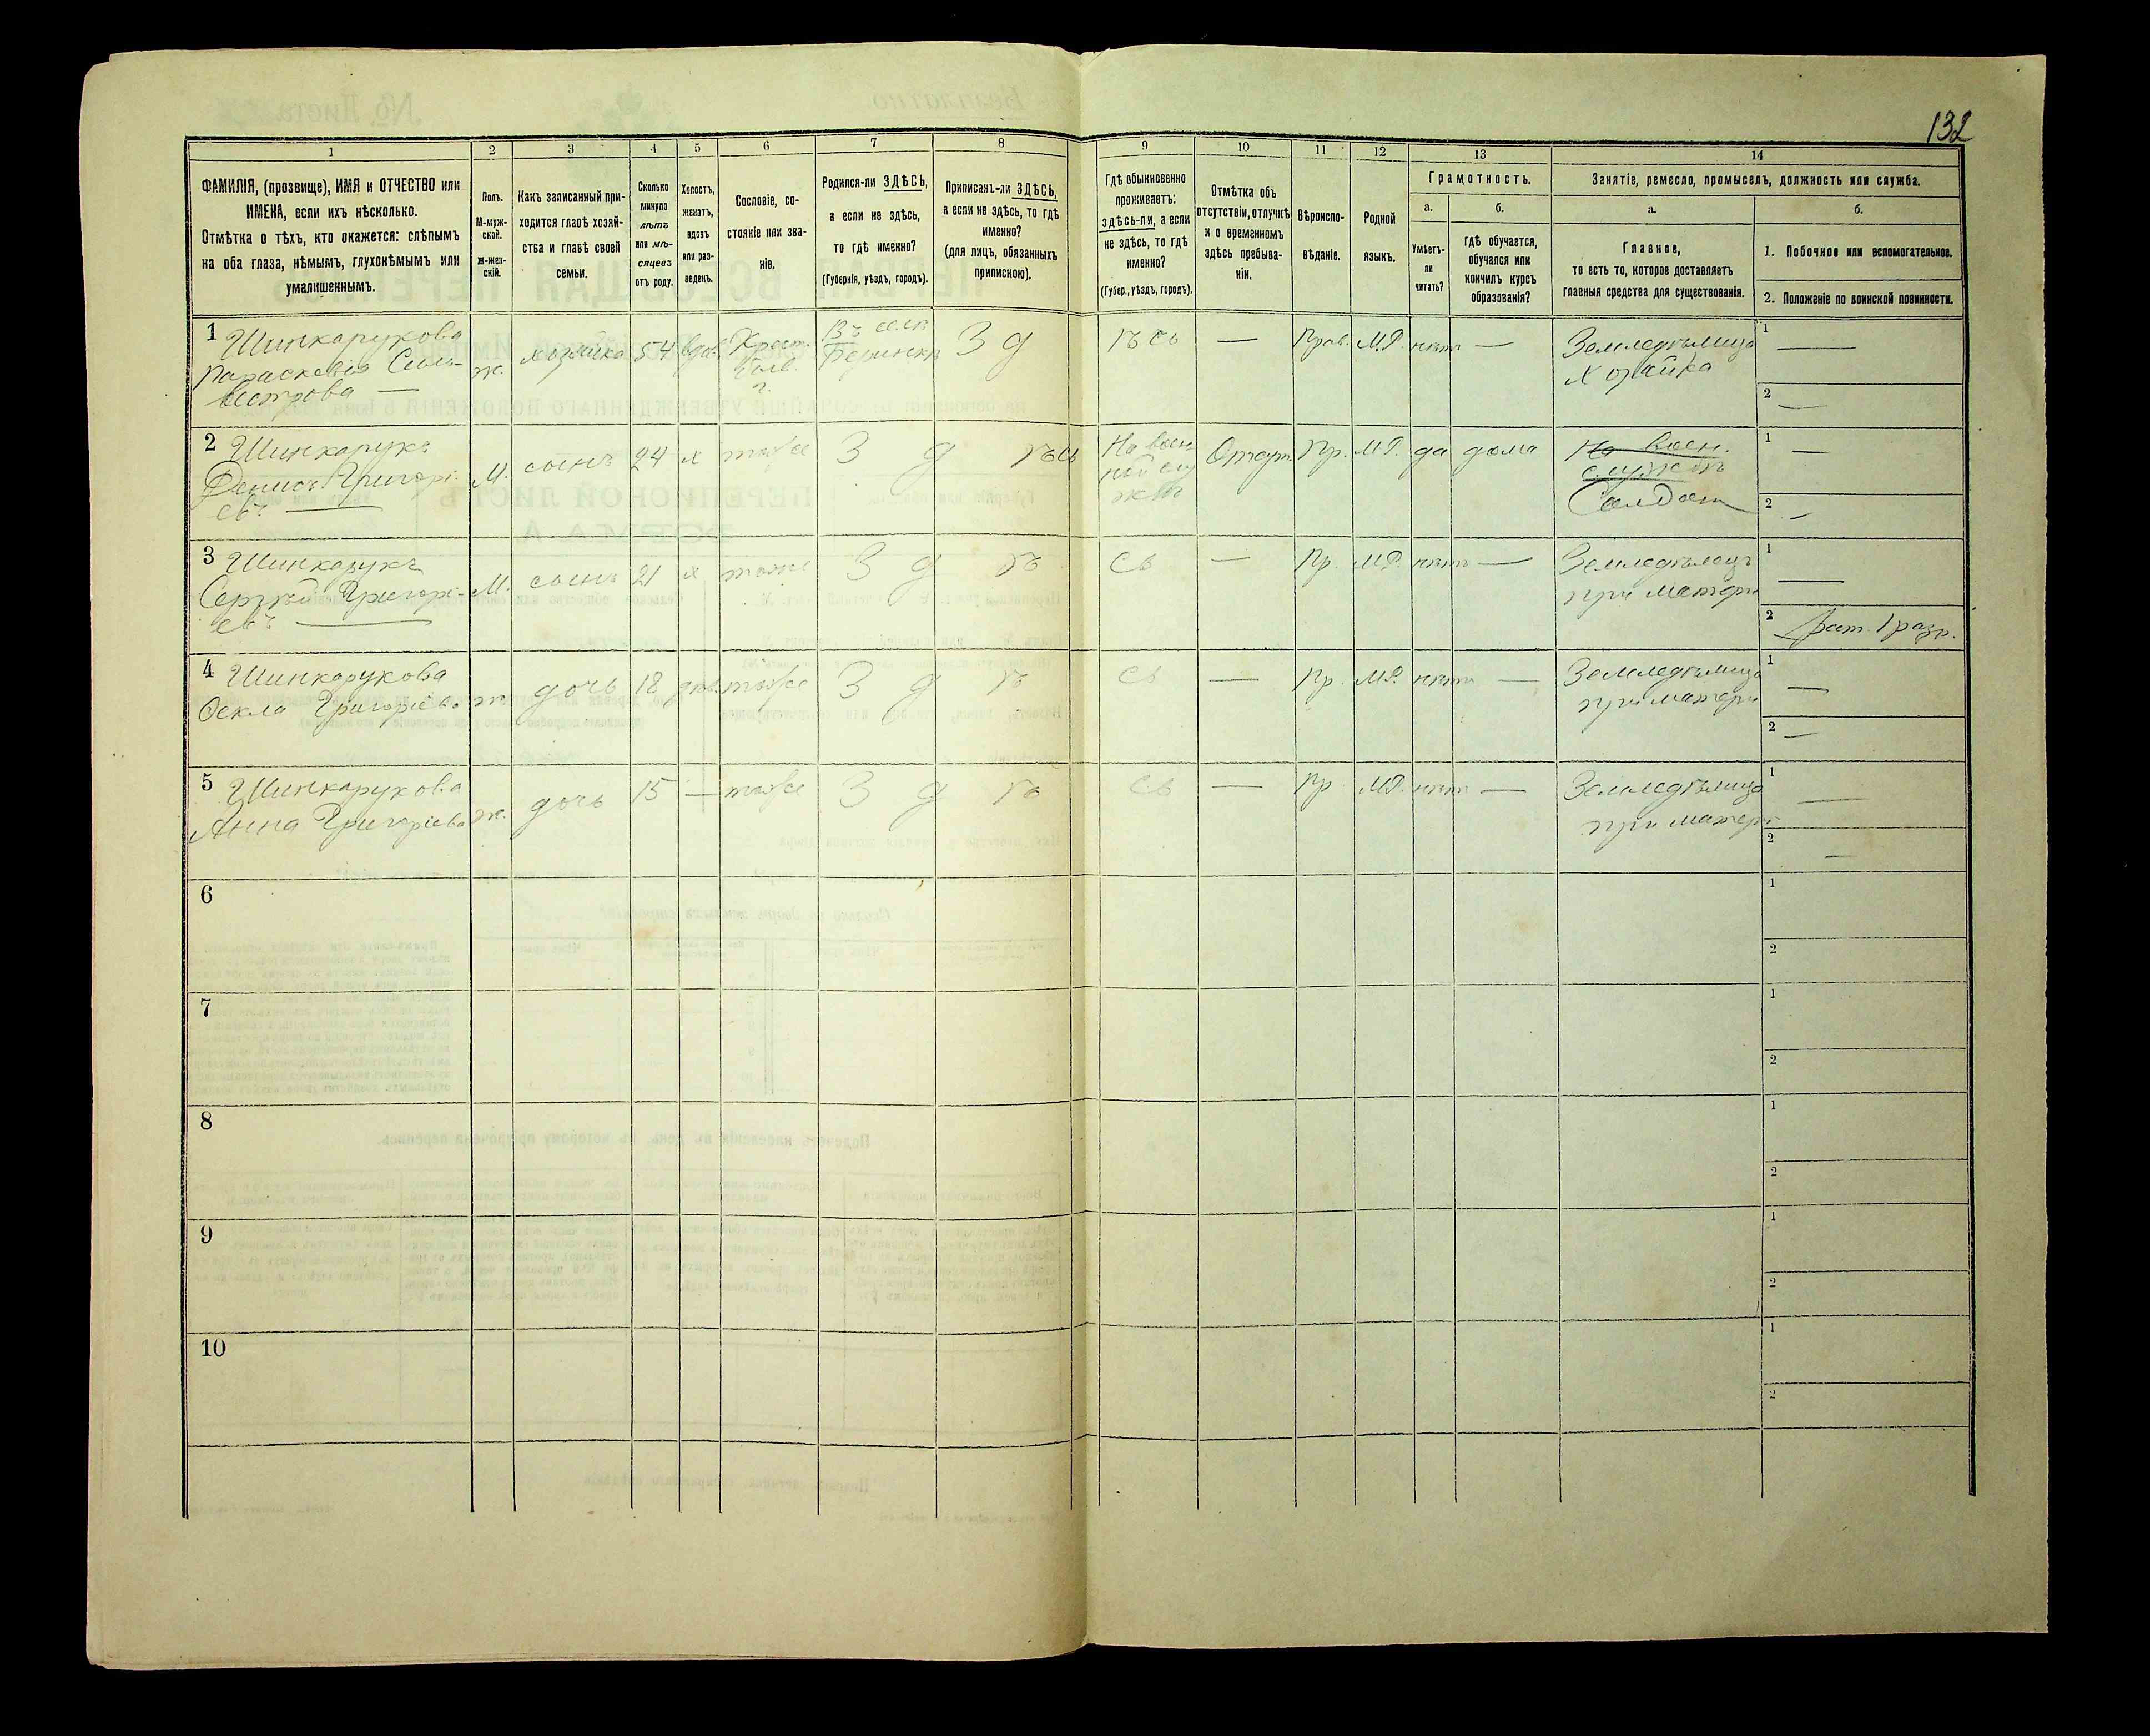 132
1 2 3 4 5 6 7 8 9 10 11 12 13 14
ФАМИЛІЯ, (прозвище), ИМЯ и ОТЧЕСТВО или
ИМЕНА, если ихъ нѣсколько.
Отмѣтка о тѣхъ, кто окажется: слѣпымъ
на оба глаза, нѣмымъ, глухонѣмымъ или
умалишеннымъ.
Полъ.
М-муж-
ской.
ж-жен-
скій.
Какъ записанный при-
ходится главѣ хозяй-
ства и главѣ своей
семьи.
Сколько
минуло
лѣтъ
или мѣ-
сяцевъ
отъ роду.
Холостъ,
женатъ,
вдовъ
или раз-
веденъ.
Сословіе, со-
стояніе или зва-
ніе.
Родился-ли ЗДѢСЬ,
а если не здѣсь,
то гдѣ именно?
(Губернія, уѣздъ, городъ).
Приписанъ-ли ЗДѢСЬ,
а если не здѣсь, то гдѣ
именно?
(для лицъ, обязанныхъ
припискою).
Гдѣ обыкновенно
проживаетъ:
здѣсь-ли, а если
не здѣсь, то гдѣ
именно?
(Губер., уѣздъ, городъ).
Отмѣтка объ
отсутствіи, отлучкѣ
и о временномъ
здѣсь пребыва-
ніи.
Вѣроиспо-
вѣданіе.
Родной
языкъ.
Грамотность.
а.
Умѣетъ-
ли
читать?
б.
гдѣ обучается,
обучался или
кончилъ курсъ
образованія?
Занятіе, ремесло, промыселъ, должность или служба.
а.
Главное,
то есть то, которое доставляетъ
главныя средства для существованія.
б.
1. Побочное или вспомогательное.
2. Положеніе по воинской повинности.
1 Шинкарукова
Параскевія Силь-
вестрова —
ж. хозяйка 54 вдов. Крест.
Въ селѣ
З д ѣ сь — Прав. М.Р. нѣтъ —
Земледѣлица
Хозяйка
1 —
2 —
2 Шинкарукъ
Денисъ Григорі-
евъ —
М. сынъ 24 х тоже З д ѣсь
На воен
ной слу
жбѣ
Отсут. Пр. М.Р. да дома
На воен.
службѣ
Солдат
1 —
2 —
3 Шинкарукъ
Сергѣй Григорі-
евъ —
М. сынъ 21 х тоже З д ѣ сь — Пр. М.Р. нѣтъ —
Земледѣлецъ
при матери
1 —
2 Рат. 1 разр.
4 Шинкарукова
Ѳекла Григоріева
ж дочь 18 дѣв. тоже З д ѣ сь — Пр. М.Р. нѣтъ —
Земледѣлица
при матери
1 —
2 —
5 Шинкарукова
Анна Григоріева
ж. дочь 15 — тоже З д ѣ сь — Пр М.Р. нѣтъ —
Земледѣлица
при матери
1 —
2 —
6
1
2
7
1
2
8
1
2
9
1
2
10
1
2